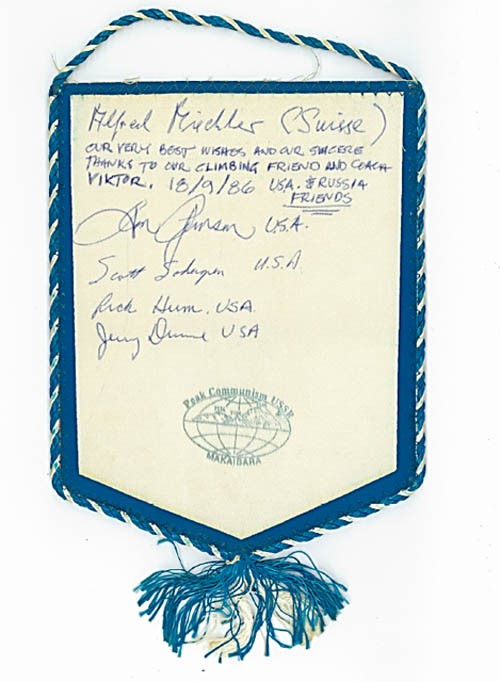 Alfred (Suisse)
OUR VERY BEST WISHES AND OUR SINCERE
THANKS TO OUR CLIMBING FRIEND AND COACH
VIKTOR. 18/9/86 USA. & RUSSIA
FRIENDS
USA.
Scott U.S.A.
Rick Hum. USA.
Jerry USA
Peak Communism USSR